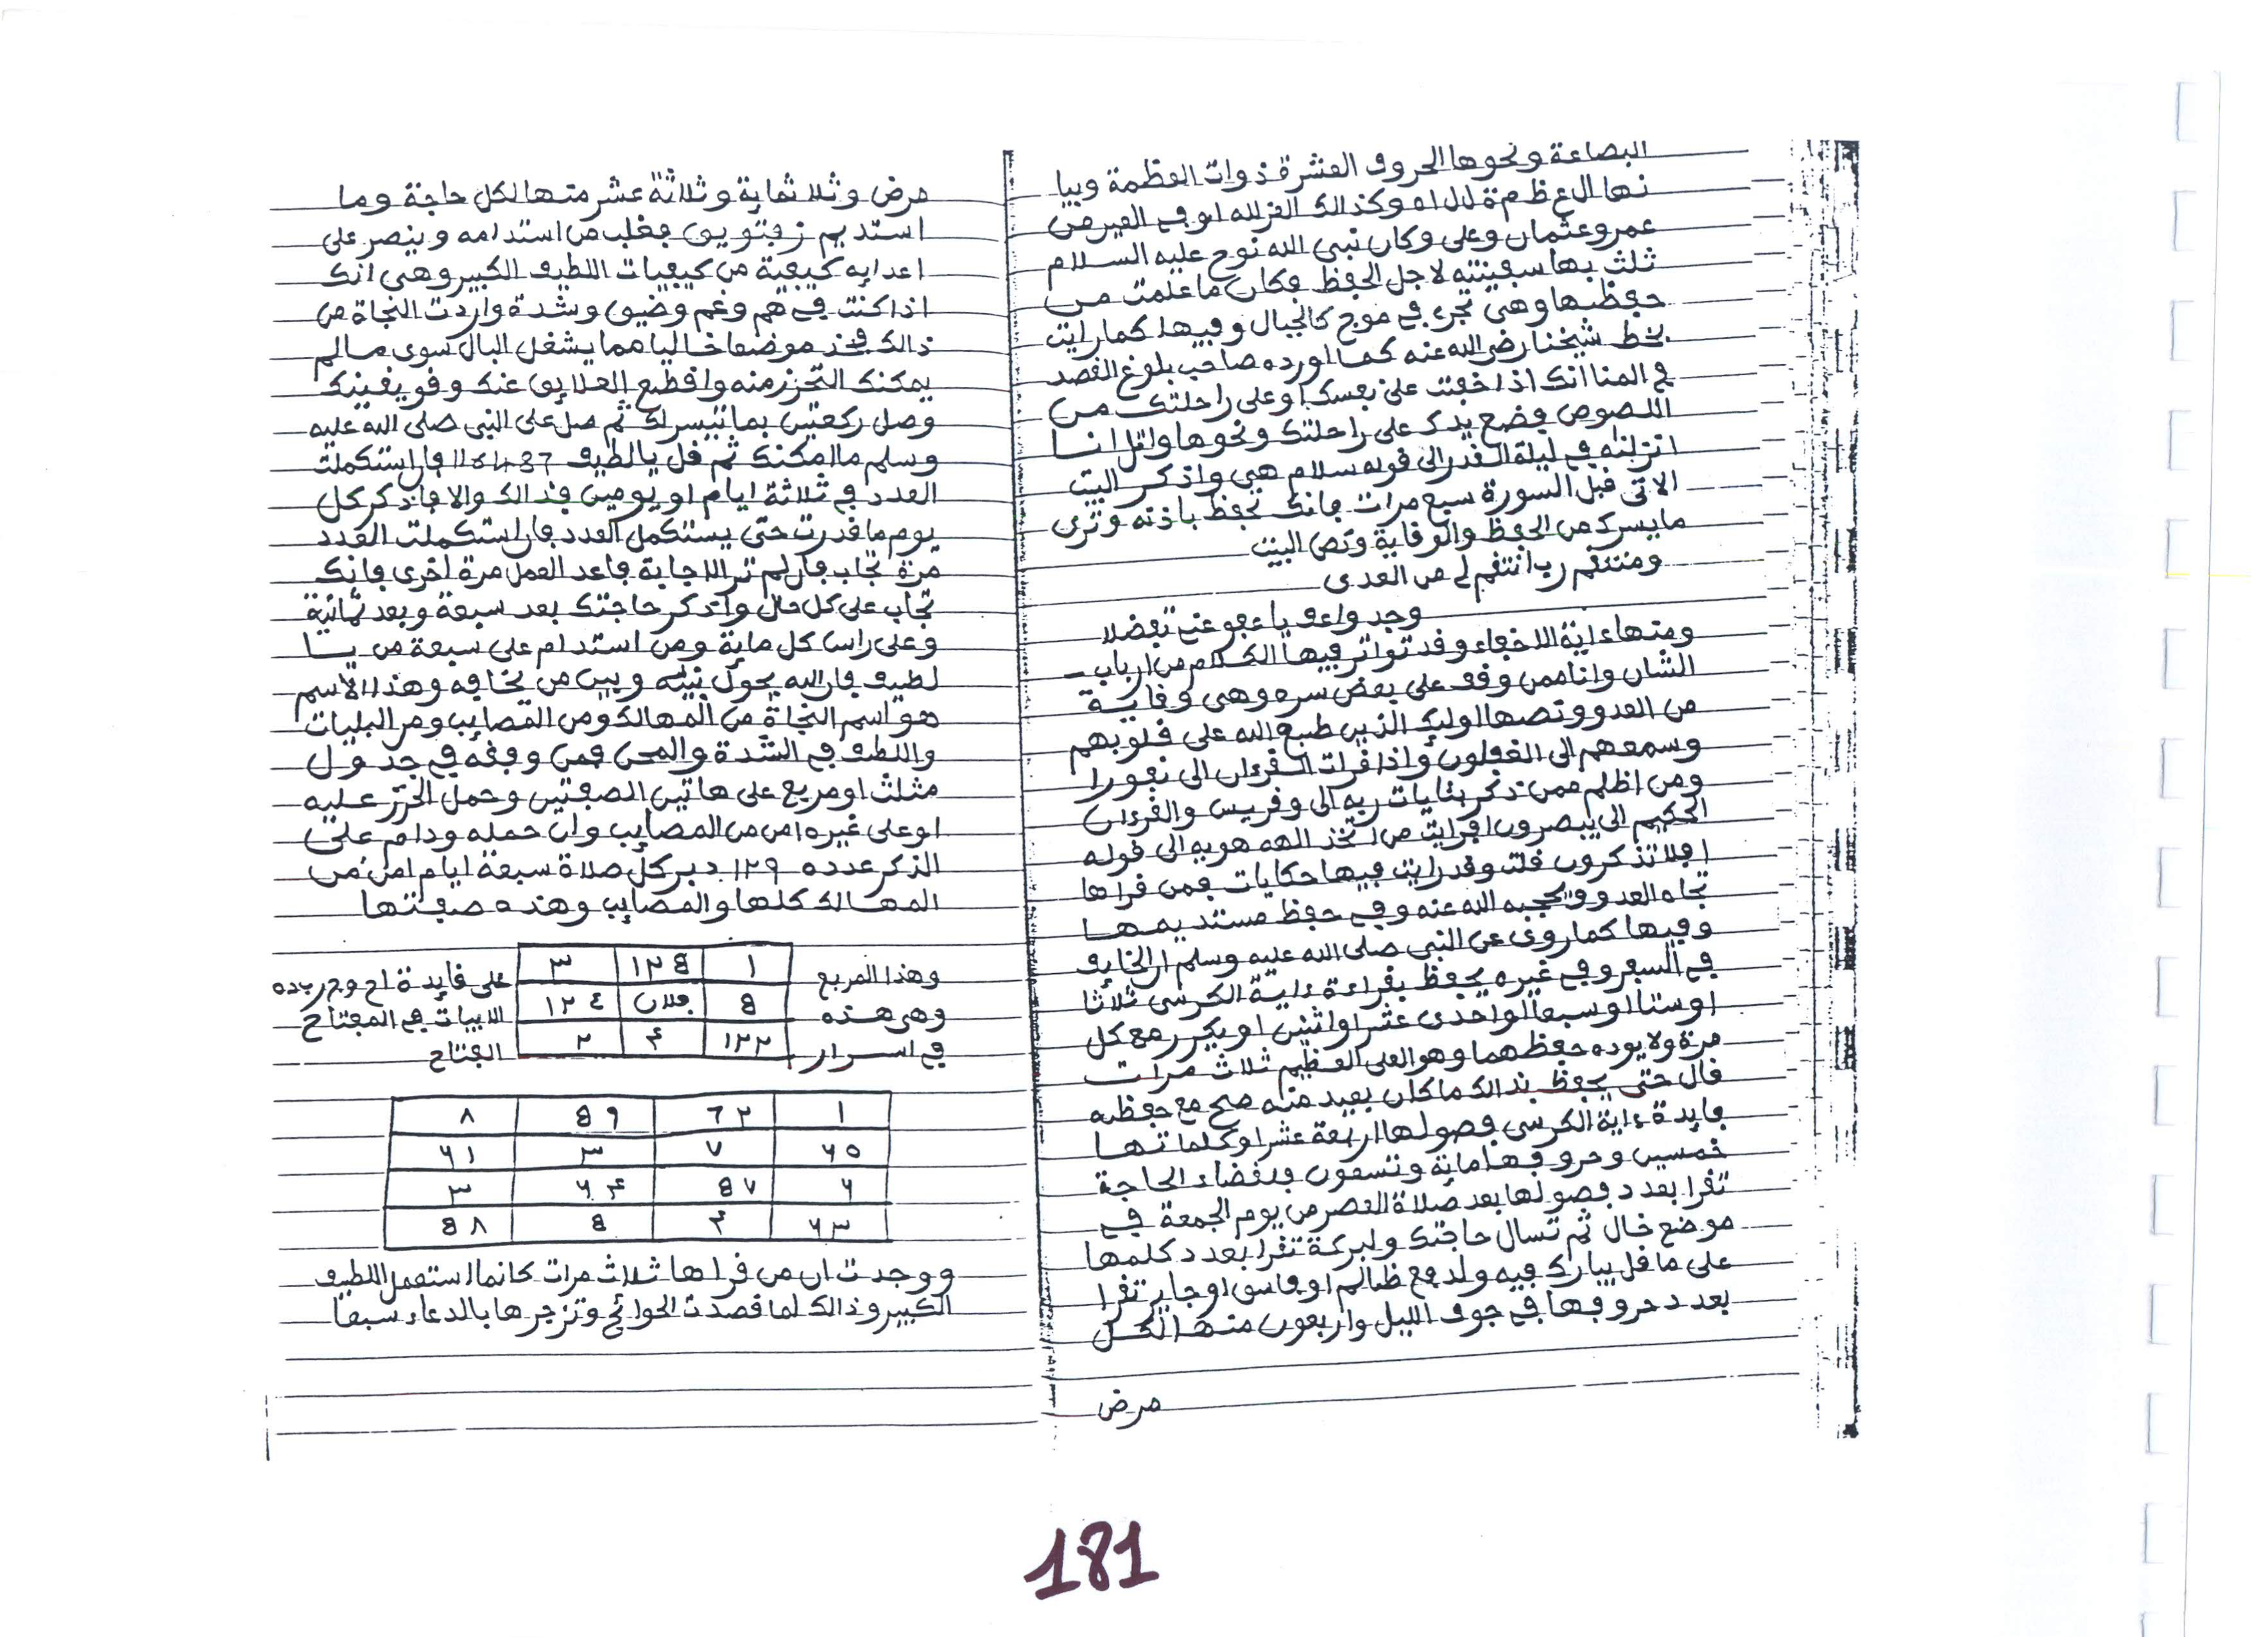 البضاعة ونحوها الحروف العشرة ذوات العظمة وبيا
نها ال ع ظ م ة لال اه وكذالك الغزالله ابو في العير من
عمر وعثمان وعلى وكان نبي الله نوح عليه السلام
ثلث بها سفينته لاجل الحفظ فكان ما علمت من
حفظها وهي تجري في موج كالجبال وفيها كما رايت
بخط شيخنا رضي الله عنه كما اورده صاحب بلوغ القصد
في المنا انك اذا خفت على نفسك او على راحلتك من
اللصوص فضع يدك على راحلتك ونحوها واتل انا
انزلنه في ليلة القدر الى قوله سلام هي واذكر البيت
الاتي قبل السورة سبع مرات فانك تحفظ باذنه وترى
ما يسرك من الحفظ والوقاية ونص البيت
ومنتقم رب انتقم لي من العدى
وجد واعف يا عفو عني تفضلا
ومنها ءاية الاخفاء وقد تواتر فيها الكلام من ارباب
الشان وانا ممن وقف على بعض سره وهي وقاية
من العدو ونصها اوليك الذين طبع الله على قلوبهم
وسمعهم الى الغفلون واذا قرات القرءان الى نفورا
ومن اظلم ممن ذكر بئايات ربه الى وقريس والقرءان
الحكيم الى يبصرون افرايت من اتخذ الهه هويه الى قوله
افلا تذكرون قلت وقد رايت فيها حكايات فمن قراها
تجاه العدو ويحجبه الله عنه وفي حفظ مستديمها
وفيها كما روي عن النبي صلى الله عليه وسلم ان الخايف
في السفر وفي غيره يحفظ بقراءة ءاية الكرسي ثلاثا
او ستا او سبعا او احدى عشر او اثنين او يكرر مع كل
مرة ولا يوده حفظهما وهو العلي العظيم ثلاث مرات
قال حتى يحفظ بذالك ما كان بعيد منه صح مع حفظه
فايدة ءاية الكرسي فصولها اربعة عشر وكلماتها
خمسين وحروفها ماية وتسعون فلقضاء الحاجة
تقرا بعدد فصولها بعد صلاة العصر من يوم الجمعة في
موضع خال ثم تسال حاجتك ولبركة تقرا بعدد كلمها
على ما قل يبارك فيه ولدفع ظالم او فاسق او جاير تقرا
بعدد حروفها في جوف الليل واربعون منها لكل
مرض
مرض وثلاثماية وثلاثة عشر منها لكل حاجة وما
استديم فغلب من استدامه وينصر على
اعدايه كيفية من كيفيات اللطيف الكبير وهي انك
اذا كنت في هم وغم وضيق وشدة واردت النجاة من
ذالك فخذ موضعا خاليا مما يشغل البال سوى ما لم
يمكنك التحرز منه واقطع العلايق عنك وقو يقينك
وصل ركعتين بما تيسر لك ثم صل على النبي صلى الله عليه
وسلم ما امكنك ثم قل يا لطيف فان استكملت
العدد في ثلاثة ايام او يومين فذالك والا فاذكر كل
يوم ما قدرت حتى يستكمل العدد فان استكملت العدد
مرة تجاب فان لم تر الاجابة فاعد العمل مرة اخرى فانك
تجاب على كل حال واذكر حاجتك بعد سبعة وبعد ثمانية
وعلى راس كل ماية ومن استدام على سبعة من يا
لطيف فان الله يحول بينه وبين من يخافه وهذا الاسم
هو اسم النجاة من المهالك ومن المصايب ومر البليات
واللطف في الشدة والمحن فمن وفقه في جدول
مثلث او مربع على هاتين الصفتين وحمل الحرز عليه
او على غيره امن من المصايب وان حمله ودام على
الذكر عدده ١٢٩ دبر كل صلاة سبعة ايام امن من
المهالك كلها والمصايب وهذه صفتها
وهذا المربع
وهي هذه
في اسرار
١ ١٢8 ٣
8 فلان ١٢٤
١٢٢ ۴ ٢
على فايدة اح وج ربده
الابيات في المفتاح
الفتاح
١ ٦٢ 8٩ ٨
٦٥ ٧ ٣ ٦١
٦ 8٧ ٦۴ ٣
٦٣ ۴ 8 8٨
ووجدت ان من قراها ثلاث مرات كانما استعمل اللطيف
الكبير وذالك لما قصدت الحوائج وتزجرها بالدعاء سبعا
181